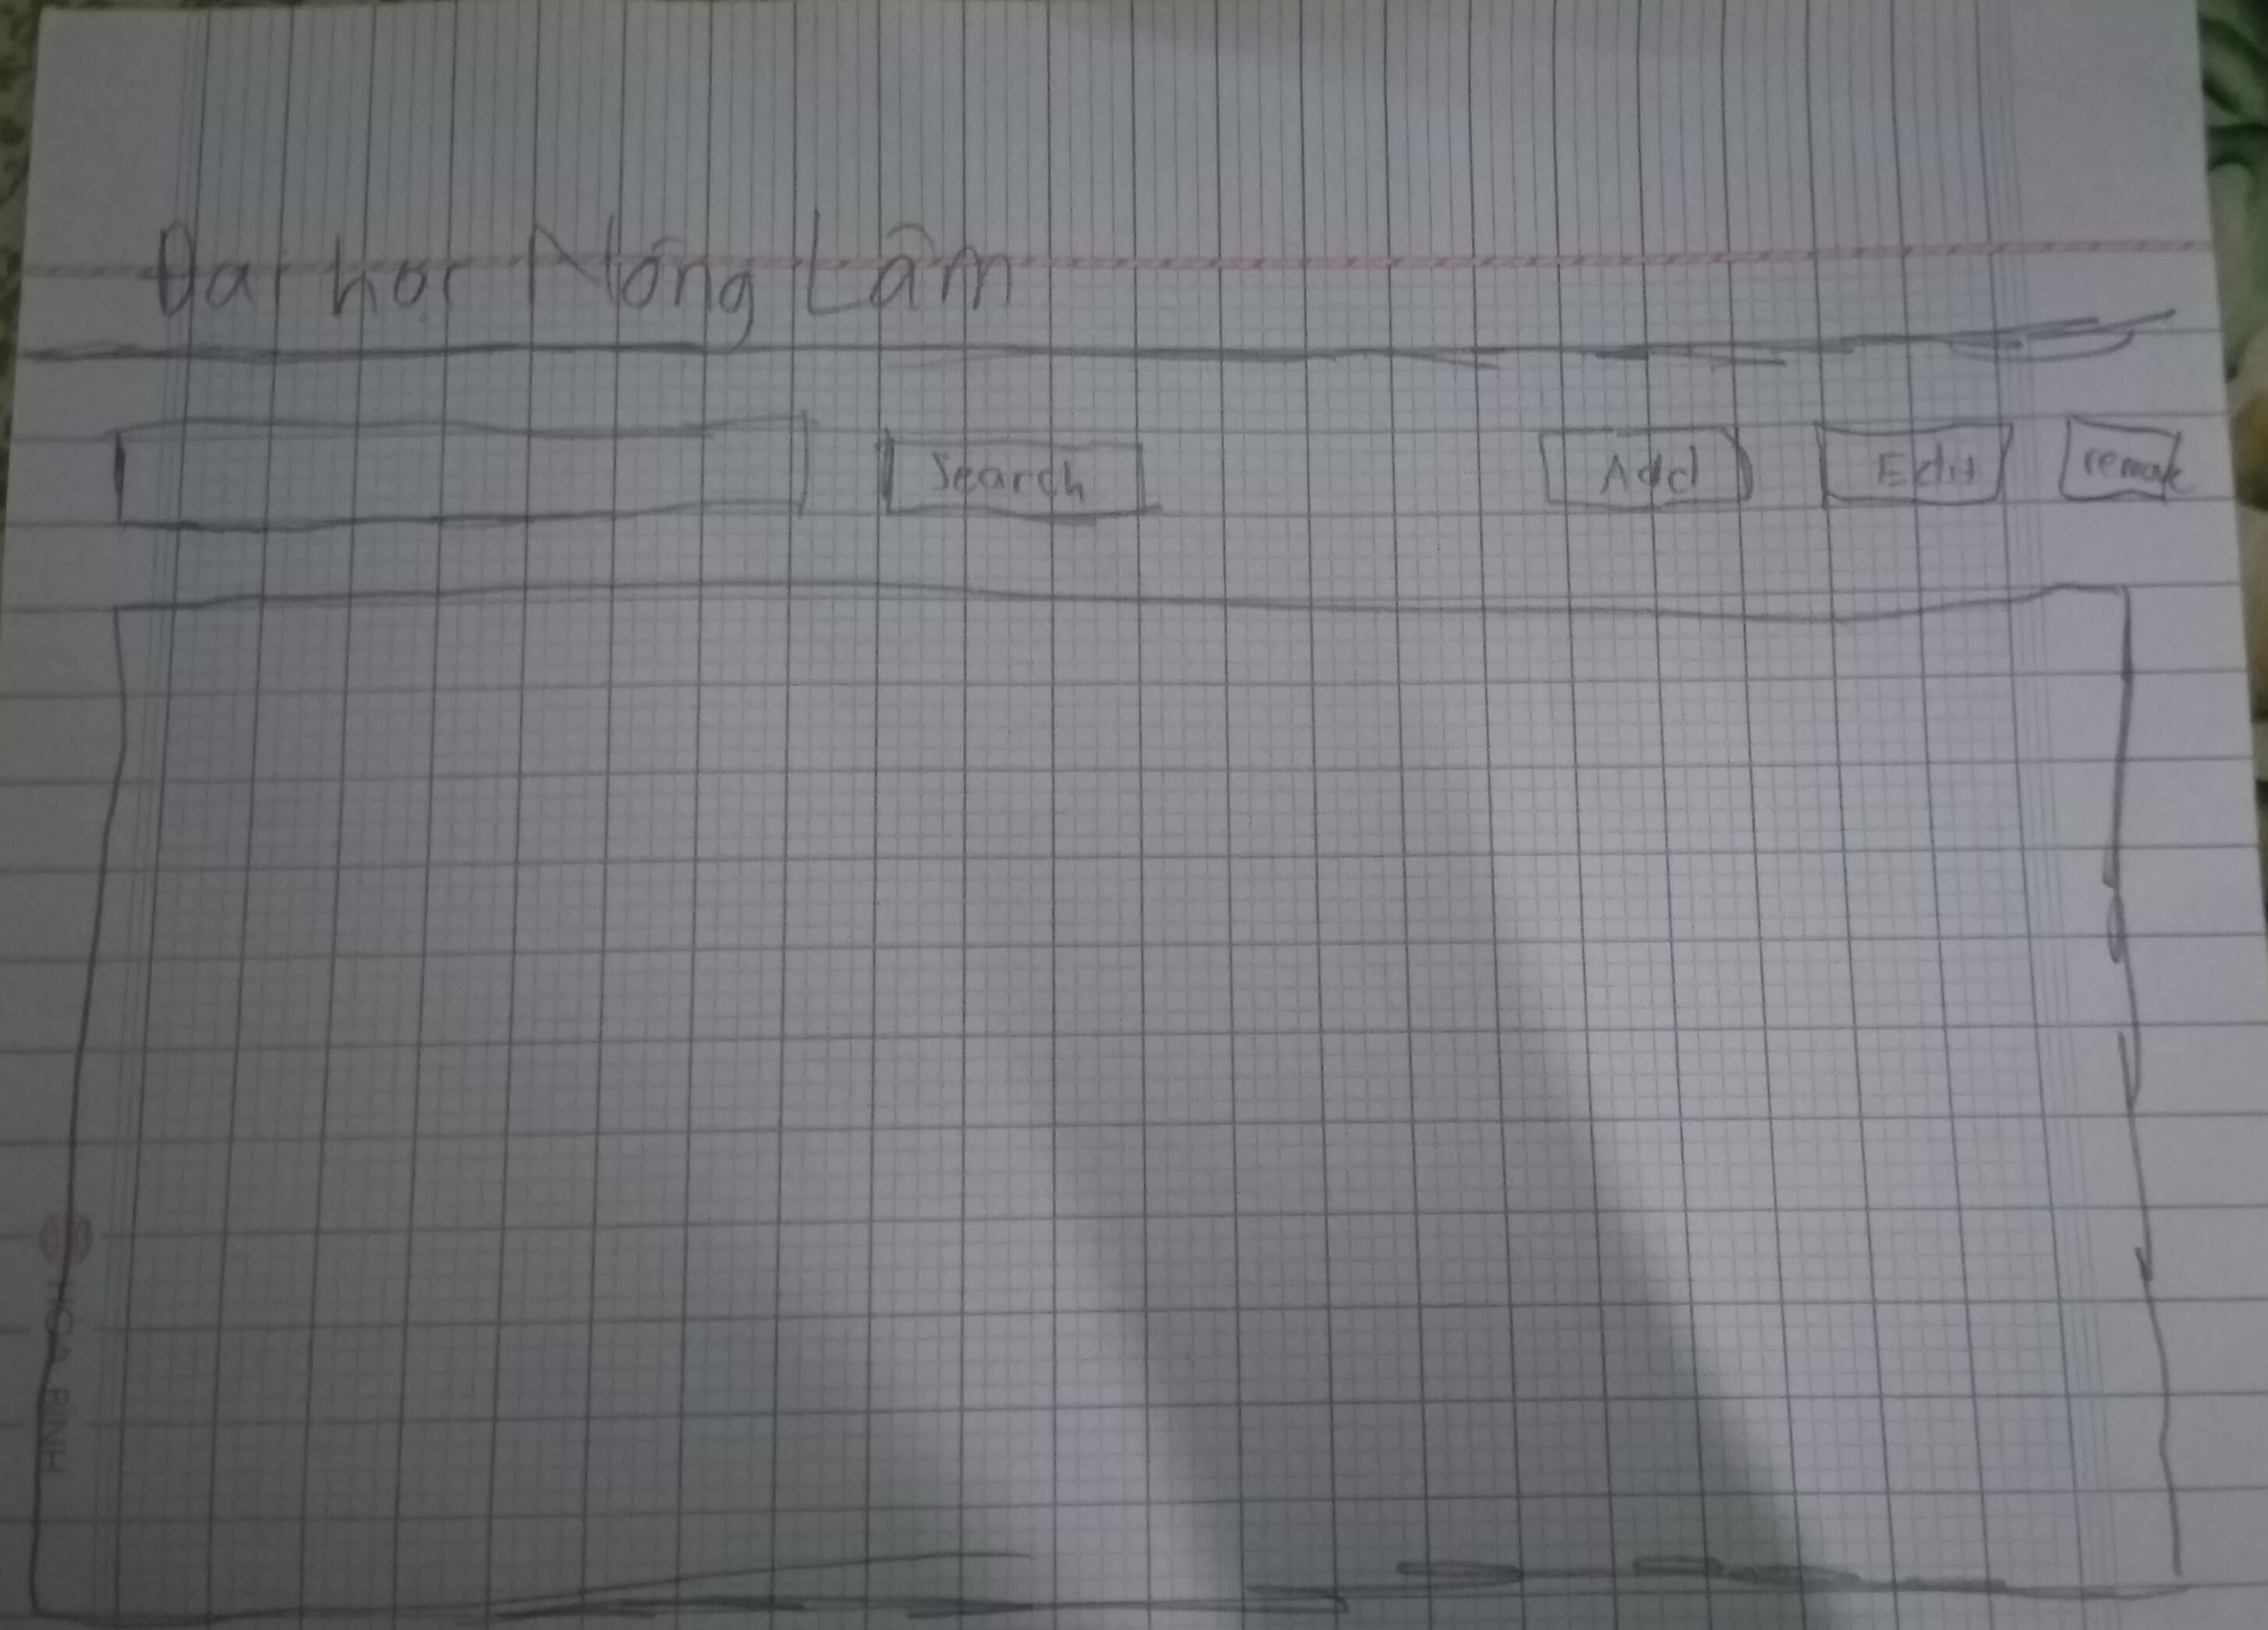 Đại học Nông Lâm
Search Add Edit remove
HÒA BÌNH